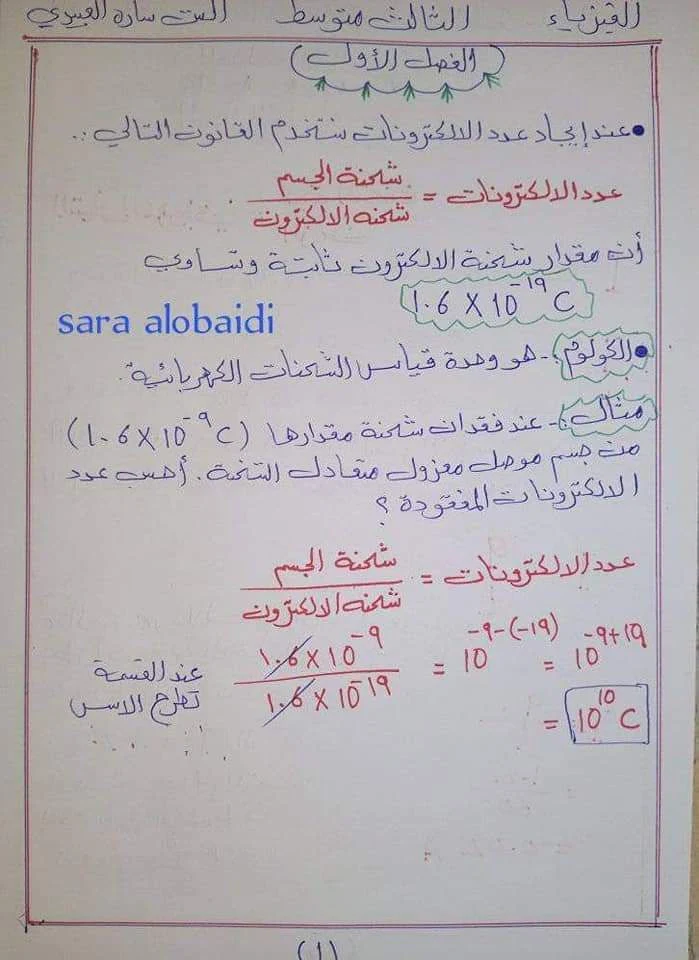 الفيزياء الثالث متوسط الست سارة العبيدي
(الفصل الأول)
• عند إيجاد عدد الالكترونات نستخدم القانون التالي :.
عدد الالكترونات = شحنة الجسم / شحنه الالكترون
أن مقدار شحنة الالكترون ثابتة وتساوي
1.6 X 10⁻¹⁹ C
sara alobaidi
• الكولوم :- هو وحدة قياس الشحنات الكهربائية.
مثال :- عند فقدان شحنة مقدارها (1.6 X 10⁻⁹ C)
من جسم موصل معزول متعادل الشحنة . أحسب عدد
الالكترونات المفقودة ؟
عدد الالكترونات = شحنة الجسم / شحنه الالكترون
1.6 X 10⁻⁹ / 1.6 X 10⁻¹⁹ = 10⁻⁹⁻⁽⁻¹⁹⁾ = 10⁻⁹⁺¹⁹
= 10¹⁰ C
عند القسمة
تطرح الاسس
(1)